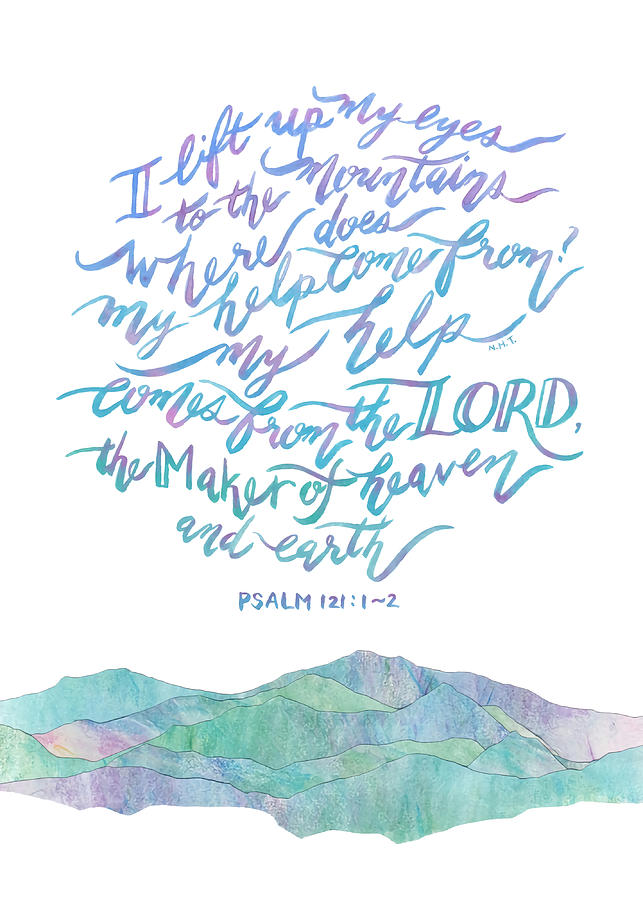 I lift up my eyes
to the mountains
where does
my help come from?
my help
N.H.T.
comes from the LORD,
the Maker of heaven
and earth
PSALM 121:1~2